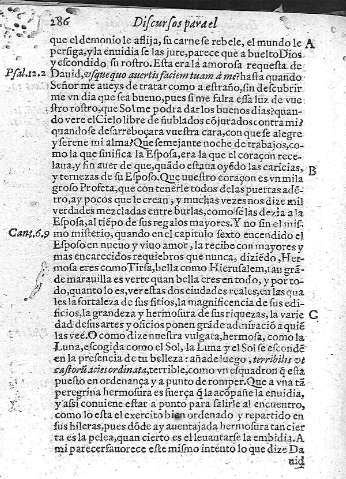 286 Discursos para el
que el demonio le aflija, su carne se rebele, el mundo le A
persiga, y la enuidia se las jure, parece que a buelto Dios
y escondido su rostro. Esta era la amorosa requesta de
Psal.12.2 Dauid, vsquequo auertis faciem tuam à me? hasta quando
Señor me aueys de tratar como a estraño, sin descubrir
me vn dia que sea bueno, pues si me falta essa luz de vue
stro rostro, que Sol me podra dar los buenos dias? quan-
do vere el Cielo libre de ñublados cõjurados contra mi?
quando se desarreboçara vuestra cara, con que se alegre
y serene mi alma? Que semejante noche de trabajos, co-
mo la que sinifica la Esposa, era la que el coraçon rece-
laua, y sin auer de que, quãdo estaua oyẽdo las caricias, B
y ternezas de su Esposo. Que nuestro coraçon es vn mila
gro Profeta, que con tenerle todos de las puertas adẽ-
tro, ay pocos que le crean, y muchas vezes nos dize mil
verdades mezcladas entre burlas, como se las dezia a la
Esposa, al tiẽpo de sus regalos mayores. Y no sin el mis-
Cant.6,9 mo misterio, quando en el capitulo sexto encendido el
Esposo en nueuo y viuo amor, la recibe con mayores y
mas encarecidos requiebros que nunca, diziẽdo, Her-
mosa eres como Tirsa, bella como Hierusalem, tan grã-
de marauilla es verte quan bella eres en todo, y por to-
do, quanto lo es, ver estas dos ciudades reales, en las qua
les la fortaleza de sus sitios, la magnificencia de sus edi-
ficios, la grandeza y hermosura de sus riquezas, la varie C
dad de sus artes y oficios ponen grãde admiraciõ a quiẽ
las vee. O como dize nuestra vulgata, hermosa, como la
Luna, escogida como el Sol, la Luna y el Sol se escondẽ
en la presencia de tu belleza: añade luego, terribilis vt
castrorũ acies ordinata, terrible, como vn esquadron q̃ esta
puesto en ordenança y a punto de romper. Que a vna tã
peregrina hermosura es fuerça q̃ la acõpañe la enuidia,
y assi conuiene estar a punto para salirle al encuentro,
como lo esta el exercito bien ordenado y repartido en
sus hileras, pues dõde ay auentajada hermosura tan cier
ta es la pelea, quan cierto es el leuantarse la embidia. A
mi parecer fauorece este mismo intento lo que dize Da
uid